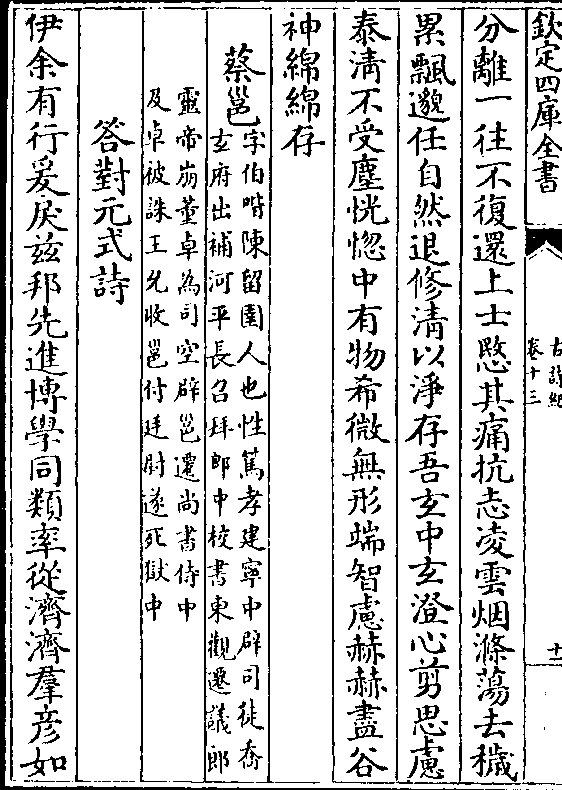 欽定四庫全書
古詩紀
卷十三
十一
分離一往不復還上士愍其痛抗志凌雲烟滌蕩去穢
累飄邈任自然退修清以淨存吾玄中玄澄心剪思慮
泰清不受塵恍惚中有物希微無形端智慮赫赫盡谷
神綿綿存
蔡邕
字伯喈陳留圉人也性篤孝建寧中辟司徒喬
玄府出補河平長召拜郎中校書東觀遷議郎
靈帝崩董卓為司空辟邕遷尚書侍中
及卓被誅王允收邕付廷尉遂死獄中
答對元式詩
伊余有行爰戾兹邦先進博學同類率從濟濟羣彦如